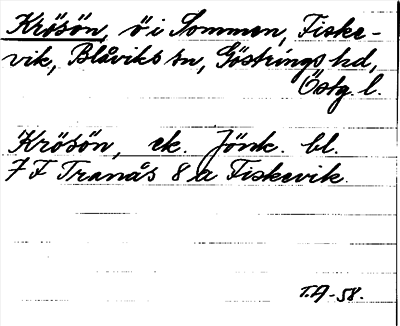 Krösön, ö i Sommen, Fiske-
vik, Blåviks sn, Göstrings hd,
Östg. l.
Krösön, ek. Jönk. bl.
7 F Tranås 8 a Fiskevik.
T.A-58.